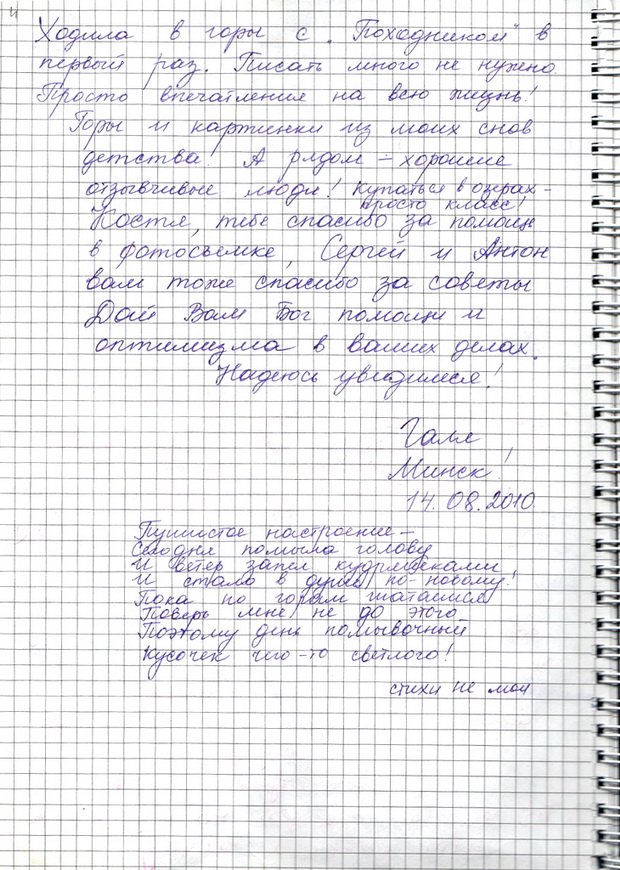 Ходила в горы с „Походником" в
первый раз. Писать много не нужно.
Просто впечатления на всю жизнь!
Горы и картинки из моих снов
детства! А рядом – хорошие
отзывчивые люди! Купаться в озёрах –
просто класс!
Костя, тебе спасибо за помощь
в фотосъемке, Сергей и Антон
вам тоже спасибо за советы
Дай Вам Бог помощи и
оптимизма в ваших делах.
Надеюсь увидимся!
Галя
Минск!
14.08.2010.
Пушистое настроение –
Сегодня помыла голову
И ветер запел кудряшками
И стало в душе по-новому!
Пока по горам шатаемся
Поверь мне не до этого
Поэтому день помывочный
Кусочек чего-то светлого!
стихи не мои